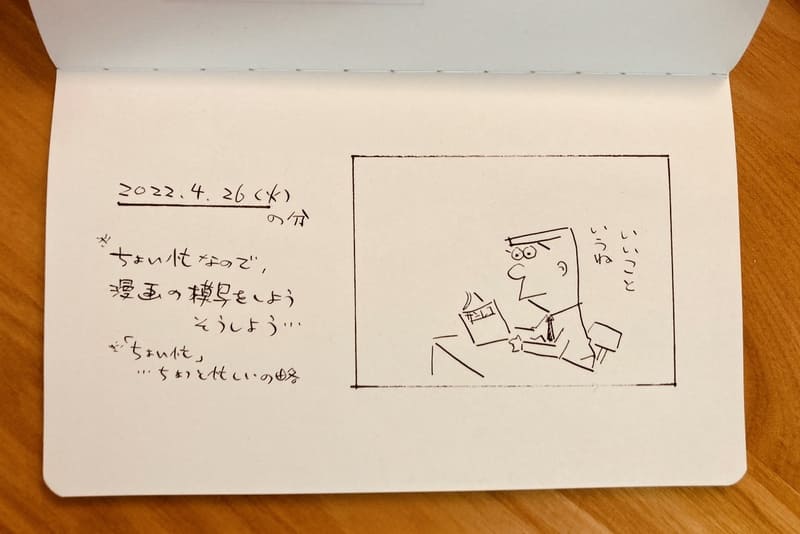 2022.4.26(火)
の分
※ちょい忙なので、
漫画の模写をしよう
そうしよう…
※「ちょい忙」
…ちょっと忙しいの略
いいこと
いうね